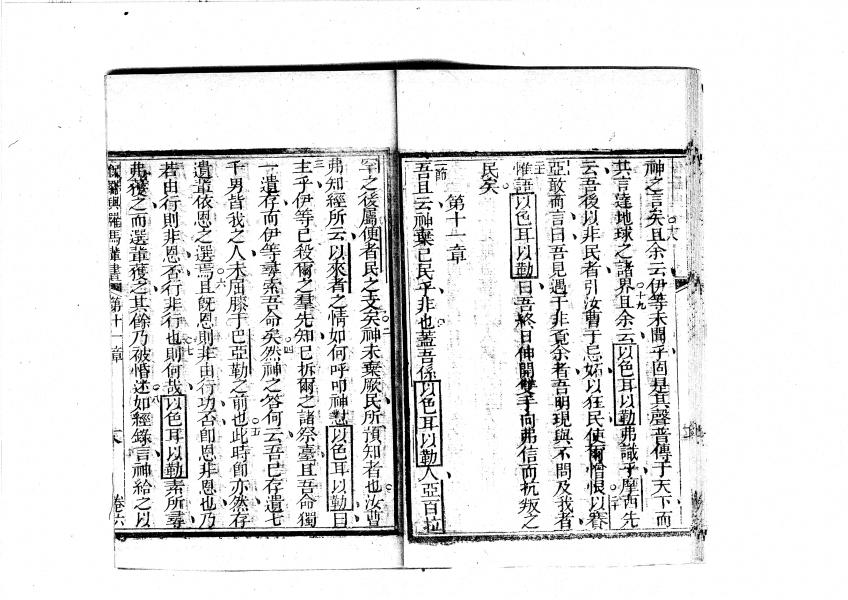 神之言矣且余云伊等未聞乎固是其聲普傳于天下而
其言達地球之諸界且余云以色耳以勒弗識乎摩西先
云吾後以非民者引汝曹于忌妬以狂民使爾恨以賽
亞敢而言曰吾見遇于非覔余者吾明現與不問及我者
惟語以色耳以勒曰吾終日伸開雙手向弗信而抗叛之
民矣
第十一章
吾且云神棄已民乎非也蓋吾係以色耳以勒人亞百拉
罕之後屬便者民之支矣神未棄厥民所預知者也汝曹
弗知經所云以來者之情如何呼叩神懟以色耳以勒曰
主乎伊等已殺爾之羣先知已拆爾之諸祭臺且吾命獨
一遺存而伊等尋索吾命矣然神之答何云吾已存遺七
千男皆我之人未屈膝于巴亞勒之前也此時卽亦然存
遺輩依恩之選焉且旣恩則非由行功否卽恩非恩也乃
若由行則非恩否行非行也則何哉以色耳以勒素所尋
弗獲之而選輩獲之其餘乃破惛述如經錄言神給之以
與羅馬輩書 第十一章 卷六